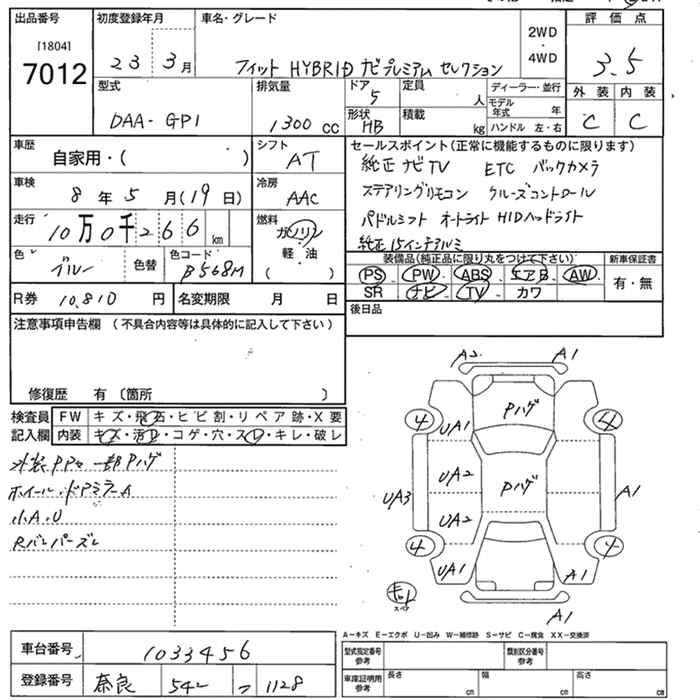 出品番号 初度登録年月 車名・グレード 評価点
[1804]
7012 23 3月 フィット HYBRID ナビプレミアム セレクション 2WD・4WD 3.5
外装 内装
C C
型式 排気量 ドア 定員 ディーラー・並行
DAA-GP1 1300cc 5 人 モデル年式 年
形状 積載
HB kg ハンドル 左・右
車歴 シフト セールスポイント(正常に機能するものに限ります)
自家用・( ) AT 純正ナビTV ETC バックカメラ
車検 冷房 ステアリングリモコン クルーズコントロール
8年5月(19日) AAC パドルシフト オートライト HIDヘッドライト
走行 燃料 純正15インチアルミ
10万0千266km ガソリン・軽油 ( )
色 色替 色コード
ブルー B568M
装備品(純正品に限り丸をつけて下さい) 新車保証書
PS PW ABS エアB AW 有・無
SR ナビ TV カワ
R券 10,810円 名変期限 月 日 後日品
注意事項申告欄(不具合内容等は具体的に記入して下さい)
修復歴 有〔箇所 〕
検査員 FW キズ・飛石・ヒビ割・リペア跡・X要
記入欄 内装 キズ・汚レ・コゲ・穴・スレ・キレ・破レ
一部Pハゲ
ホイール・ドアミラーA
小A.U
Rバンパーズレ
A2 A1
Pハゲ
4 UA1 4
UA2 Pハゲ
UA3 A1
UA2
4 4
UA1 A1
スペア
A1
A-キズ E-エクボ U-凹み W-補修跡 S-サビ C-腐食 XX-交換済
車台番号 1033456
型式指定番号 参考 類別区分番号 参考
登録番号 奈良 542 1128
車庫証明用 参考 長さ cm 幅 cm 高さ cm